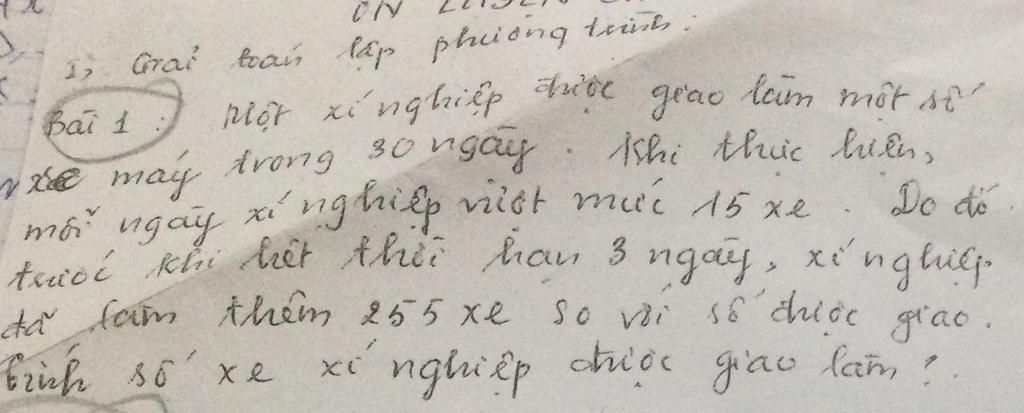 ÔN LUYỆN
I, Giải toán lập phương trình:
Bài 1: Một xí nghiệp được giao làm một số
xe máy trong 30 ngày. Khi thực hiện,
mỗi ngày xí nghiệp vượt mức 15 xe. Do đó
trước khi hết thời hạn 3 ngày, xí nghiệp
đã làm thêm 255 xe so với số được giao.
Tính số xe xí nghiệp được giao làm?